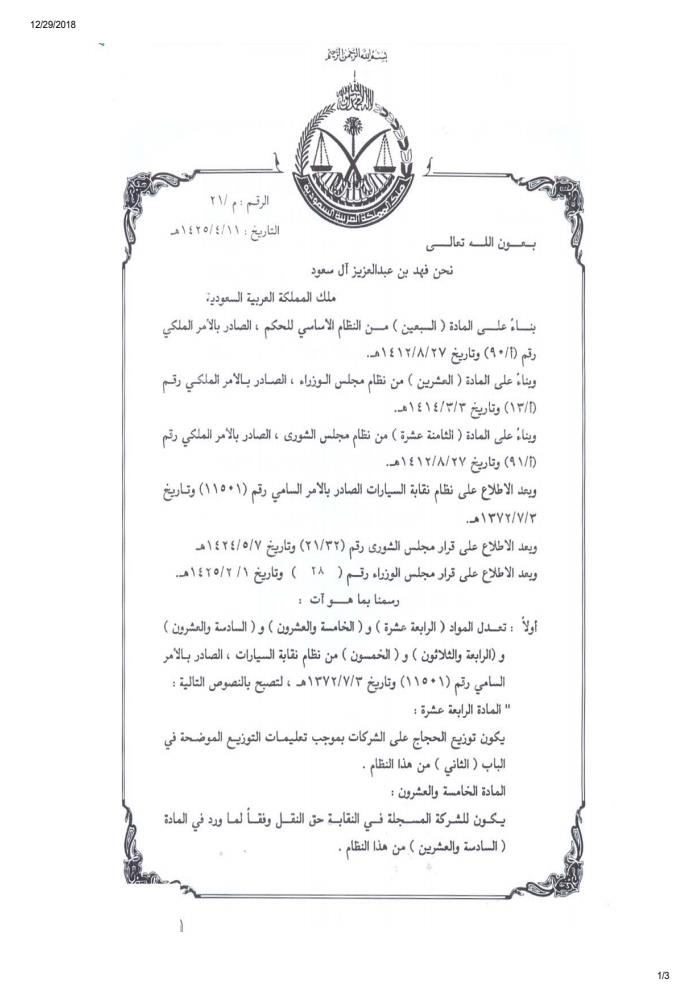 12/29/2018
بسم الله الرحمن الرحيم
ملك المملكة العربية السعودية
الرقم : م /٢١
التاريخ : ١٤٢٥/٤/١١هـ
بـعــون اللــه تعالــى
نحن فهد بن عبدالعزيز آل سعود
ملك المملكة العربية السعودية
بنــاءً علــى المادة ( السبعين ) مــن النظام الأساسي للحكم ، الصادر بالأمر الملكي
رقم (أ/٩٠) وتاريخ ١٤١٢/٨/٢٧هـ.
وبناءً على المادة ( العشرين ) من نظام مجلس الـوزراء ، الصـادر بـالأمر الملكـي رقـم
(أ/١٣) وتاريخ ١٤١٤/٣/٣هـ.
وبناءً على المادة ( الثامنة عشرة ) من نظام مجلس الشورى ، الصادر بالأمر الملكي رقم
(أ/٩١) وتاريخ ١٤١٢/٨/٢٧هـ.
وبعد الاطلاع على نظام نقابة السيارات الصادر بالأمر السامي رقم (١١٥٠١) وتـاريخ
١٣٧٢/٧/٣هـ.
وبعد الاطلاع على قرار مجلس الشورى رقم (٢١/٣٢) وتاريخ ١٤٢٤/٥/٧هـ
وبعد الاطلاع على قرار مجلس الوزراء رقـم ( ٢٨ ) وتاريخ ١٤٢٥/٢/١هـ.
رسمنا بما هــو آت :
أولاً : تعـدل المواد ( الرابعة عشرة ) و ( الخامسة والعشرون ) و ( السادسة والعشرون )
و (الرابعة والثلاثون ) و ( الخمسون ) من نظام نقابة السيارات ، الصادر بـالأمر
السامي رقم (١١٥٠١) وتاريخ ١٣٧٢/٧/٣هـ ، لتصبح بالنصوص التالية :
" المادة الرابعة عشرة :
يكون توزيع الحجاج على الشركات بموجب تعليمـات التوزيـع الموضحة في
الباب ( الثاني ) من هذا النظام .
المادة الخامسة والعشرون :
يـكـون للشركة المسجلة فـي النقابـة حق النقل وفقـاً لمـا ورد في المادة
( السادسة والعشرين ) من هذا النظام .
1/3